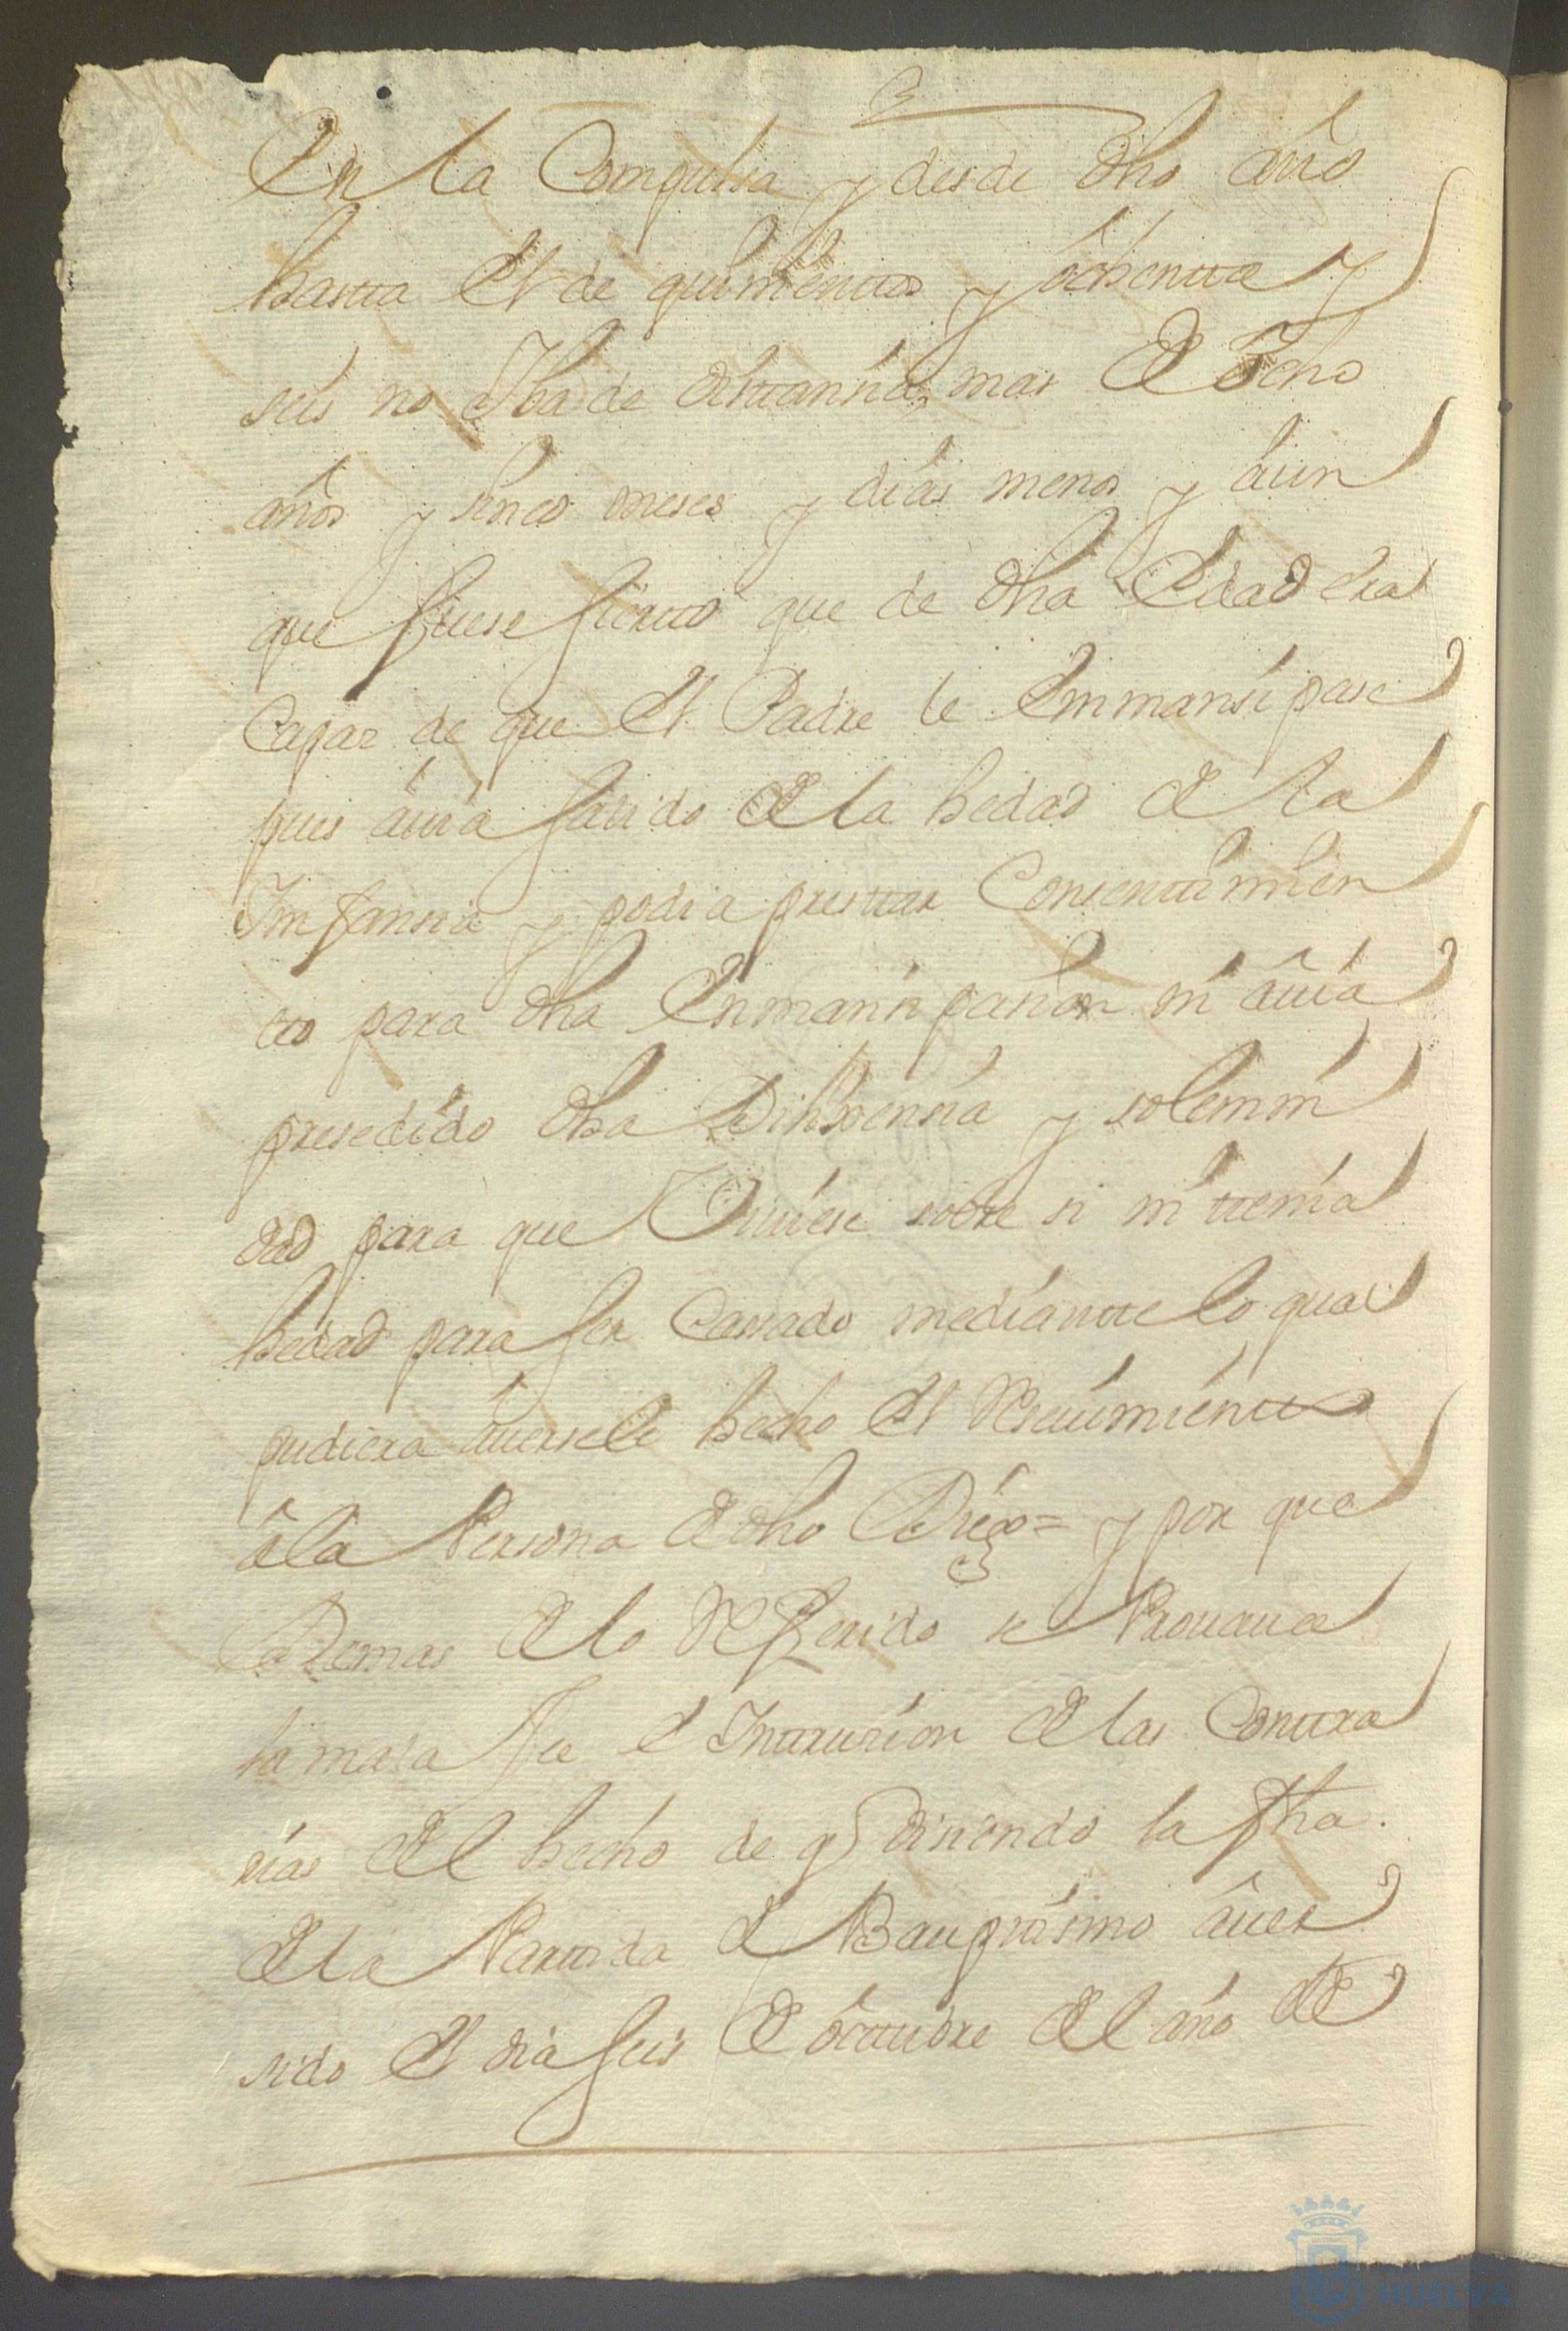 En la Compulsa y desde dho año
hasta El de quinientos y ôchenta y
seis no Iba de distansia mas de ocho
años y sinco meses y dias menos y aun
que fuese sierto que de dha Edad era
Capaz de que El Padre le Emmansipase
pues avia salido de la hedad de la
Imfansia y podia prestar Consentimien
to para dha Enmansipasion ni avia
presedido dha Dispensia y solemni
dad para que Viviese sobre si ni tenia
hedad para ser Cassado mediante lo qual
pudiera averse le hecho El Resevimiento
â la Persona de dho Diego = y por que
Ademas de lo Referido se Provava
la mala fee e Intrusion de las Contra
rias del hecho de q disiendo la fha.
de la Partida de Bauptismo âver
sido El dia seis de octubre del año de
HUELVA